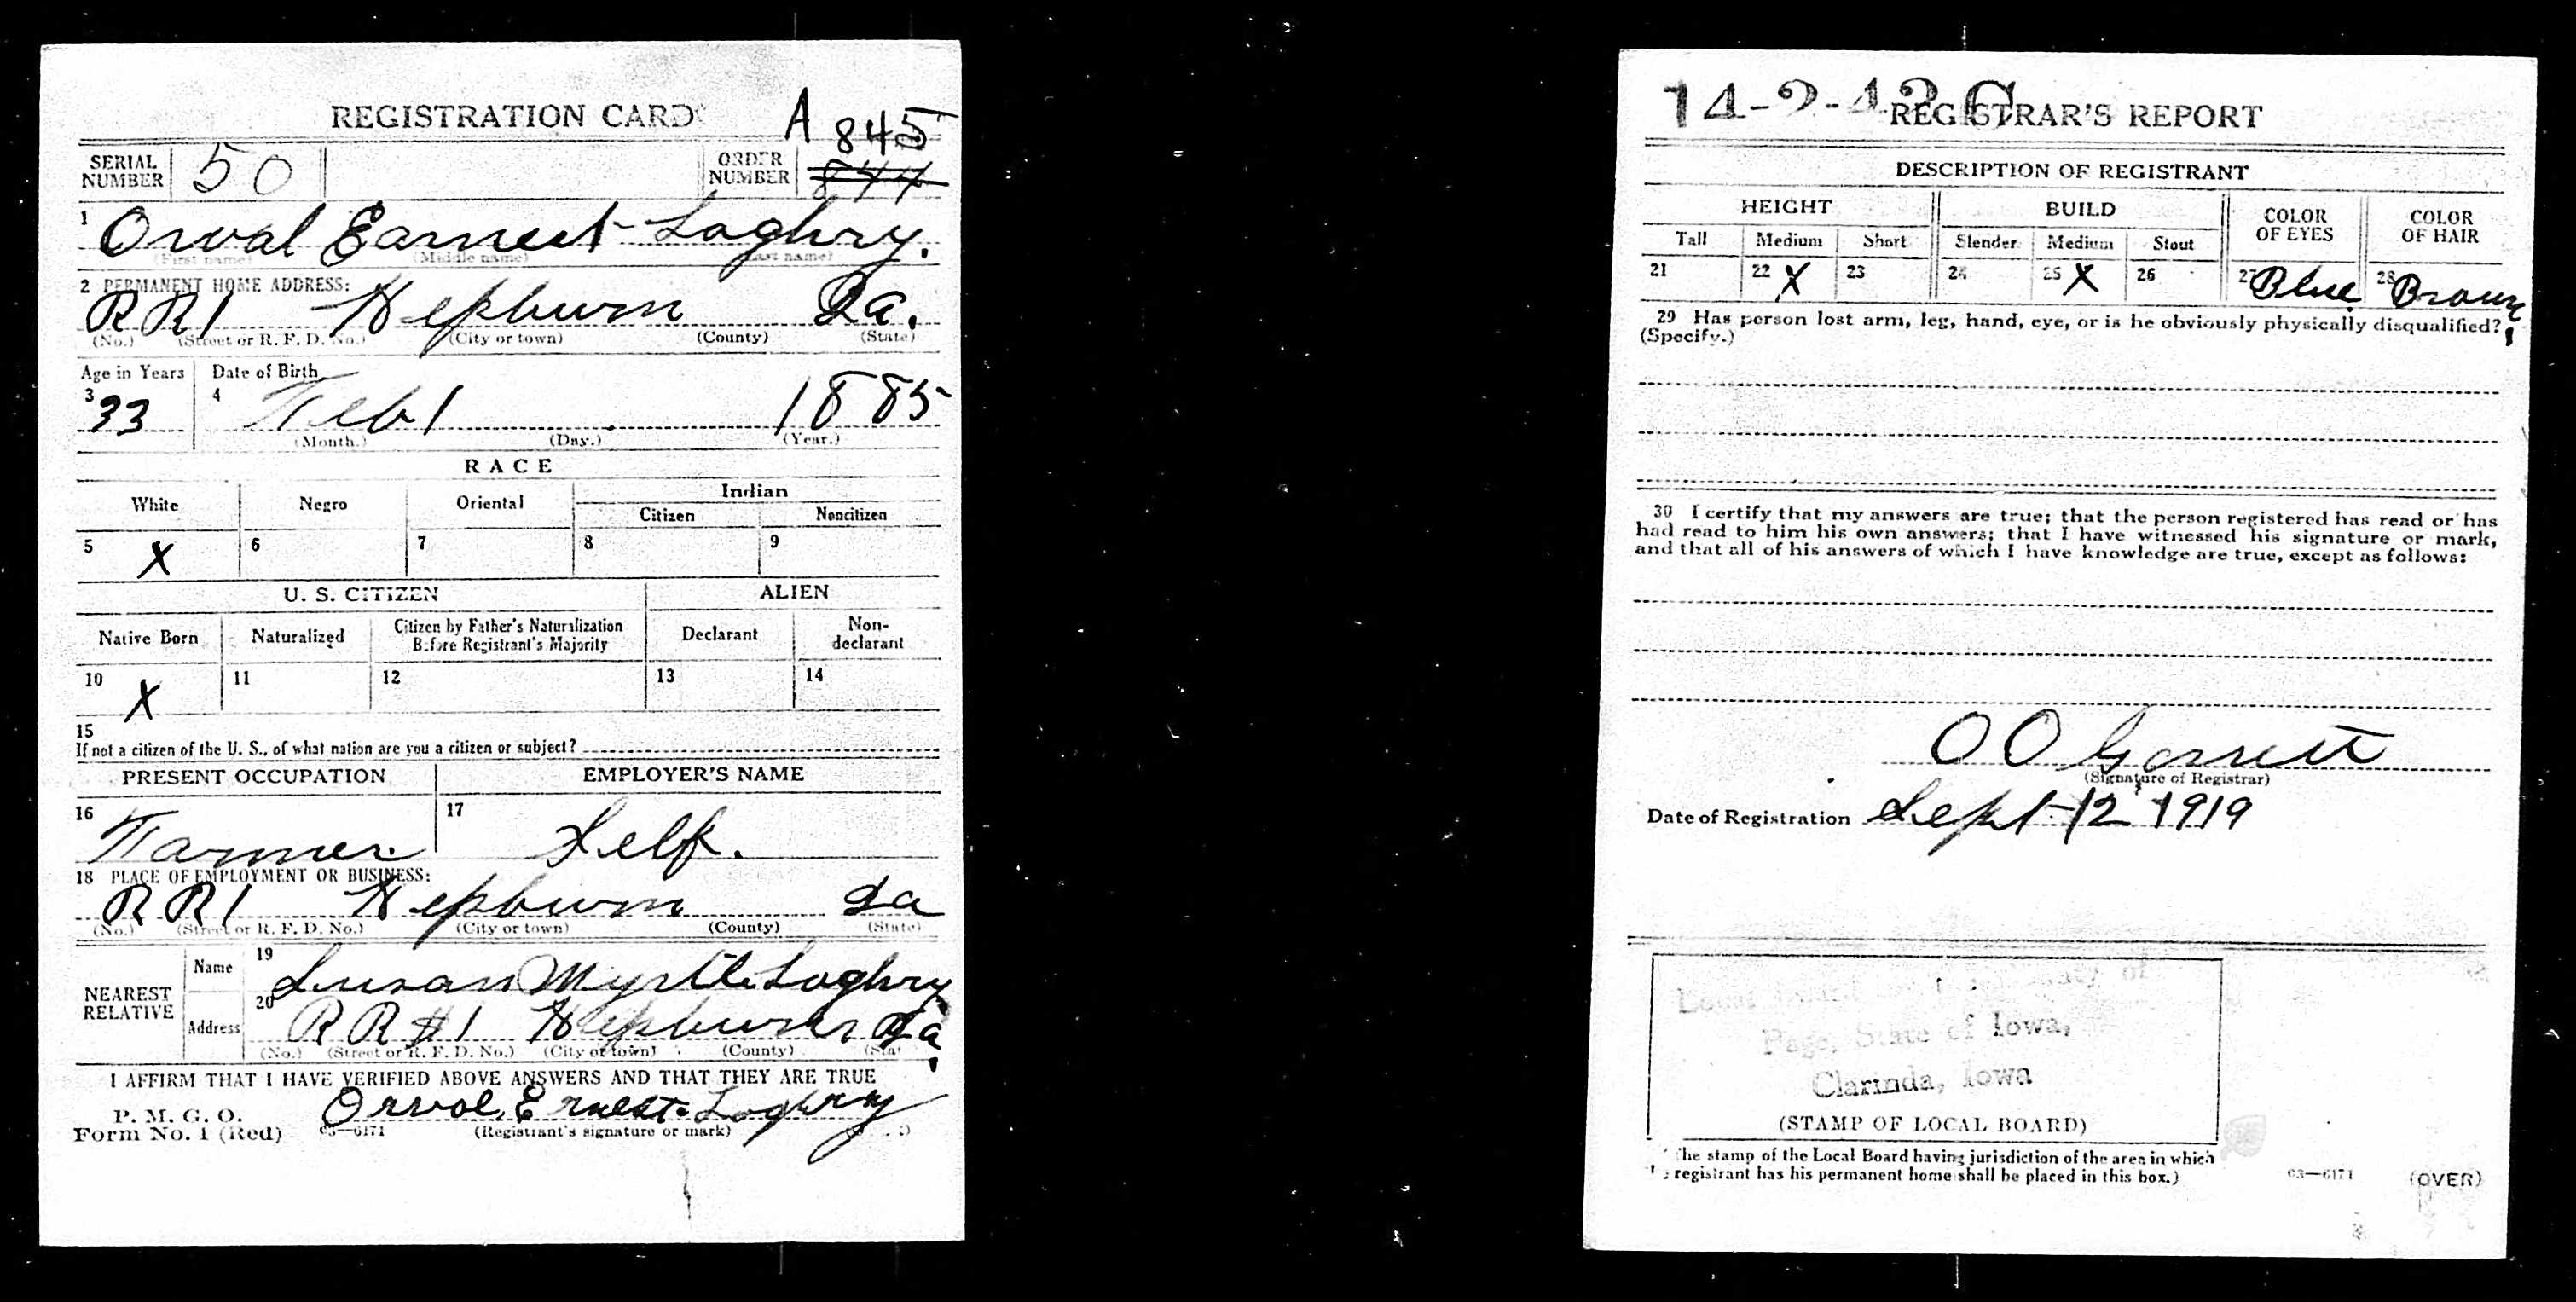 REGISTRATION CARD
SERIAL NUMBER 50 ORDER NUMBER A 845 844
1 Orval Earnest Loghry.
(First name) (Middle name) (Last name)
2 PERMANENT HOME ADDRESS:
RR1 Hepburn Ia.
(No.) (Street or R. F. D. No.) (City or town) (County) (State)
Age in Years Date of Birth
3 33 4 Feb 1 1885
(Month.) (Day.) (Year.)
RACE
White Negro Oriental Indian
Citizen Noncitizen
5 X 6 7 8 9
U. S. CITIZEN ALIEN
Native Born Naturalized Citizen by Father's Naturalization Before Registrant's Majority Declarant Non-declarant
10 X 11 12 13 14
15
If not a citizen of the U. S., of what nation are you a citizen or subject?
PRESENT OCCUPATION EMPLOYER'S NAME
16 Farmer. 17 Self.
18 PLACE OF EMPLOYMENT OR BUSINESS:
RR1 Hepburn Ia
(No.) (Street or R. F. D. No.) (City or town) (County) (State)
NEAREST RELATIVE Name 19 Susan Myrtle Loghry
Address 20 RR #1 Hepburn Ia.
(No.) (Street or R. F. D. No.) (City or town) (County)
I AFFIRM THAT I HAVE VERIFIED ABOVE ANSWERS AND THAT THEY ARE TRUE
P. M. G. O.
Form No. 1 (Red) 03—6171 Orval Ernest Loghry
(Registrant's signature or mark)
14-2-42 C
REGISTRAR'S REPORT
DESCRIPTION OF REGISTRANT
HEIGHT BUILD COLOR OF EYES COLOR OF HAIR
Tall Medium Short Slender Medium Stout
21 22 X 23 24 25 X 26 27 Blue 28 Brown
29 Has person lost arm, leg, hand, eye, or is he obviously physically disqualified?
(Specify.)
30 I certify that my answers are true; that the person registered has read or has
had read to him his own answers; that I have witnessed his signature or mark,
and that all of his answers of which I have knowledge are true, except as follows:
O O Garrett
(Signature of Registrar)
Date of Registration Sept 12 1919
Local County of
Page, State of Iowa,
Clarinda, Iowa
(STAMP OF LOCAL BOARD)
The stamp of the Local Board having jurisdiction of the area in which
registrant has his permanent home shall be placed in this box.)
03—6171 (OVER)